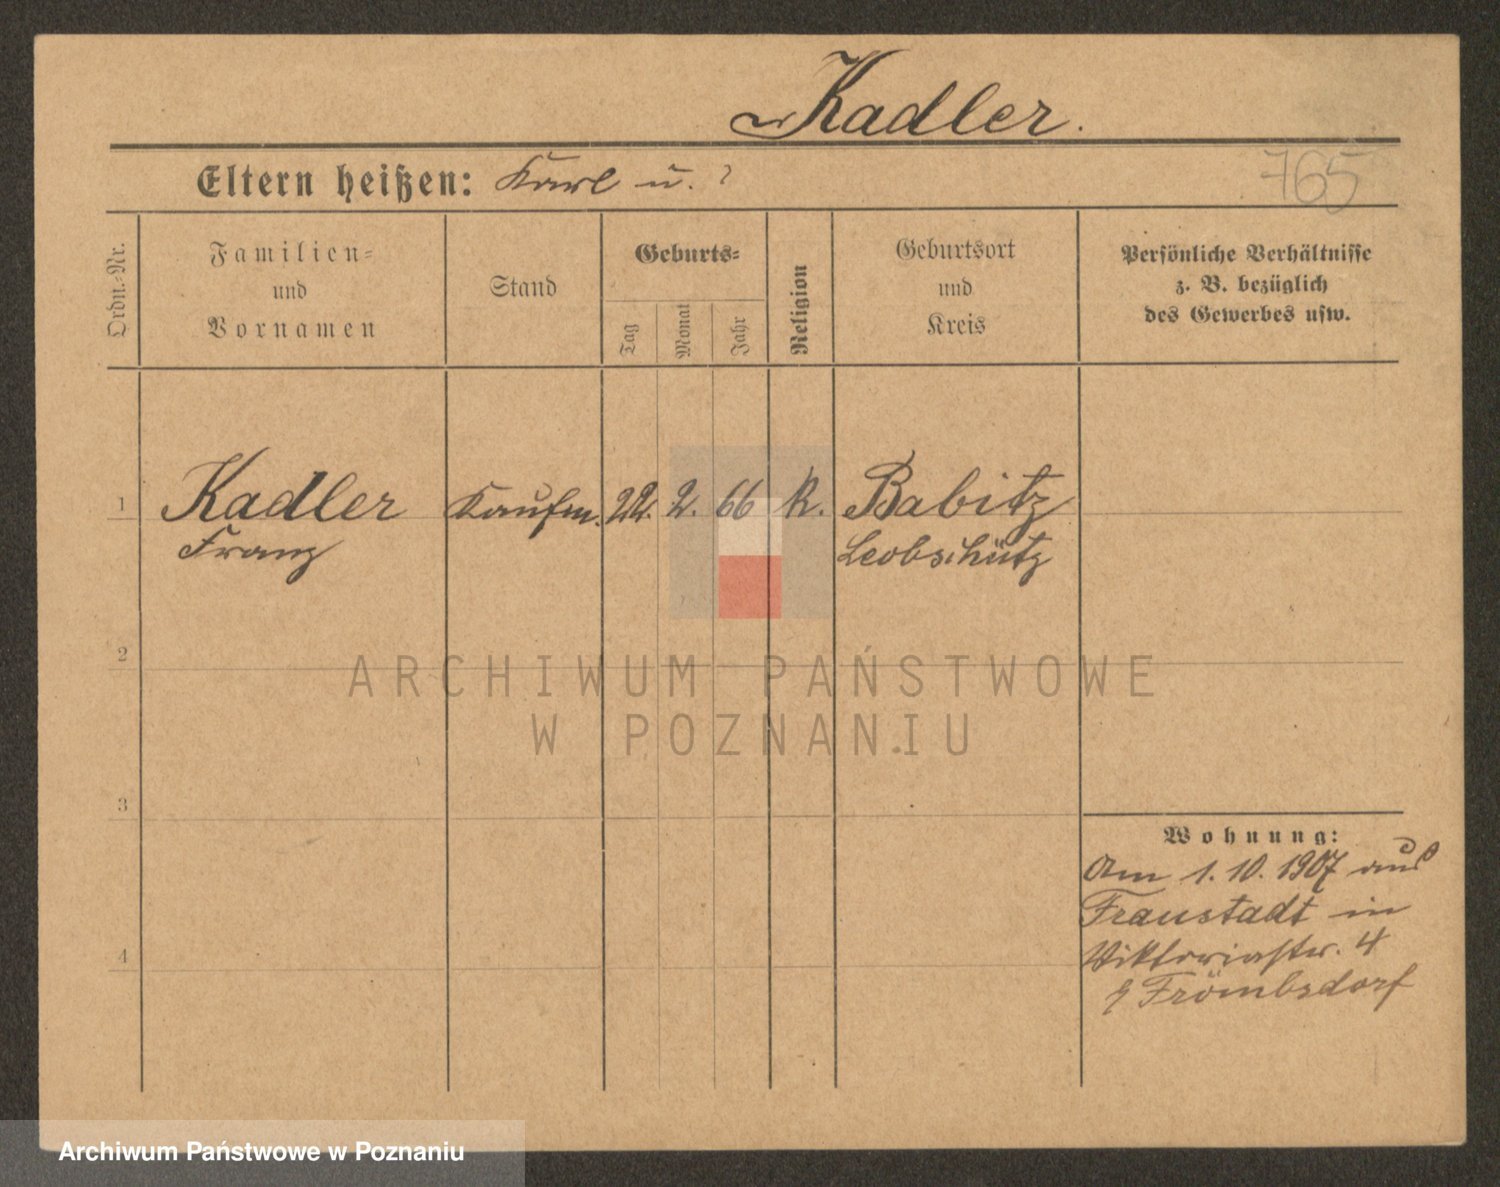 Kadler.
765
Eltern heißen: Karl u. ?
Ordn.-Nr.
Familien-
und
Vornamen
Stand
Geburts-
Tag
Monat
Jahr
Religion
Geburtsort
und
Kreis
Persönliche Verhältnisse
z. B. bezüglich
des Gewerbes usw.
1 Kadler Kaufm. 22. 2. 66 K. Babitz
Franz Leobschütz
2
3
4
Wohnung:
Am 1. 10. 1907 aus
Fraustadt in
Viktoriastr. 4
Frömbsdorf
ARCHIWUM PAŃSTWOWE
W POZNANIU
Archiwum Państwowe w Poznaniu